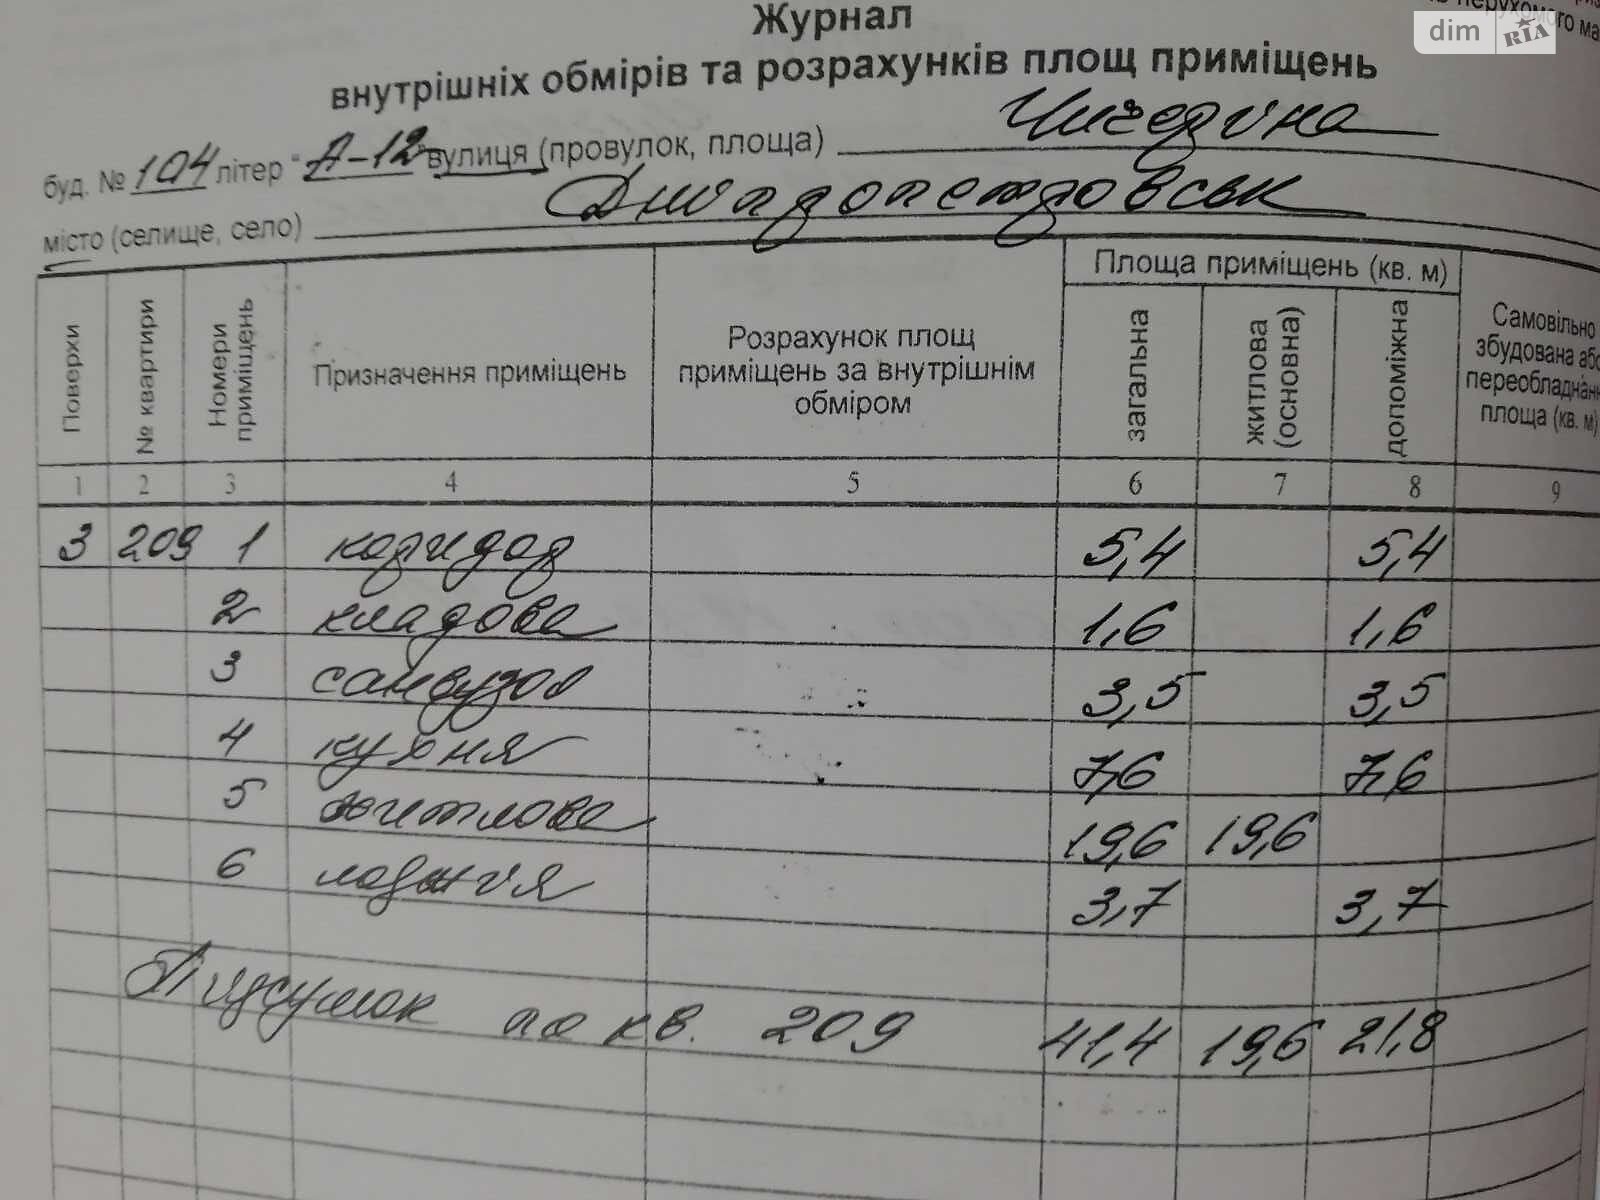 Журнал
нерухомого ма
dim RIA
внутрішніх обмірів та розрахунків площ приміщень
буд. № 104 літер "А-12" вулиця (провулок, площа) Чичеріна
місто (селище, село) Дніпропетровськ
Поверхи № квартири Номери приміщень Призначення приміщень Розрахунок площ приміщень за внутрішнім обміром Площа приміщень (кв. м) загальна житлова (основна) допоміжна Самовільно збудована або переобладнан площа (кв. м)
1 2 3 4 5 6 7 8 9
3 209 1 коридор 5,4 5,4
2 кладова 1,6 1,6
3 санвузол 3,5 3,5
4 кухня 7,6 7,6
5 житлова 19,6 19,6
6 лоджія 3,7 3,7
Підсумок по кв. 209 41,4 19,6 21,8